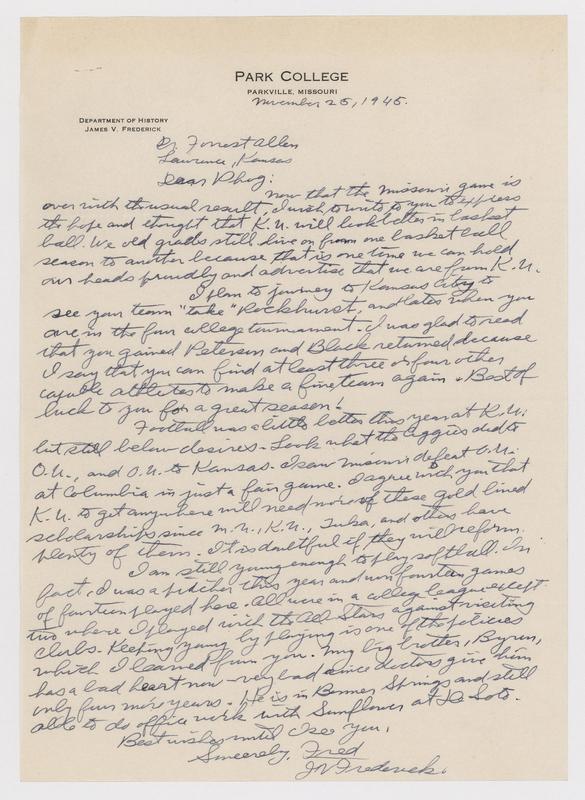 PARK COLLEGE
PARKVILLE, MISSOURI
November 25, 1945.
DEPARTMENT OF HISTORY
JAMES V. FREDERICK
Dr. Forrest Allen
Lawrence, Kansas
Dear Phog:
Now that the Missouri game is
over with the usual result, I wish to write to you to express
the hope and thought that K.U. will look better in basket
ball. We old grads still live on from one basket ball
season to another because that is one time we can hold
our heads proudly and advertise that we are from K.U.
I plan to journey to Kansas City to
see your team "take" Rockhurst, and later when you
are in the four college tournament. I was glad to read
that you gained Peterson and Black returned because
I say that you can find at least three or four other
capable athletes to make a fine team again. Best of
luck to you for a great season!
Football was a little better this year at K.U.
but still below desires. Look what the Aggies did to
O.U., and O.U. to Kansas. I saw Missouri defeat O.U.
at Columbia in just a fair game. I agree with you that
K.U. to get anywhere will need more of these gold lined
scholarships since M.U., K.U., Tulsa, and others have
plenty of them. It is doubtful if they will reform.
I am still young enough to play softball. In
fact, I was a pitcher this year and won fourteen games
of fourteen played here. All were in a college league except
two where I played with the All Stars against visiting
clubs. Keeping young by playing is one of the policies
which I learned from you. My big brother, Byron,
has a bad heart now - very bad since doctors give him
only four more years. He is in Bonner Springs and still
able to do office work with Sunflower at De Soto.
Best wishes until I see you.
Sincerely, Fred
J V Frederick.